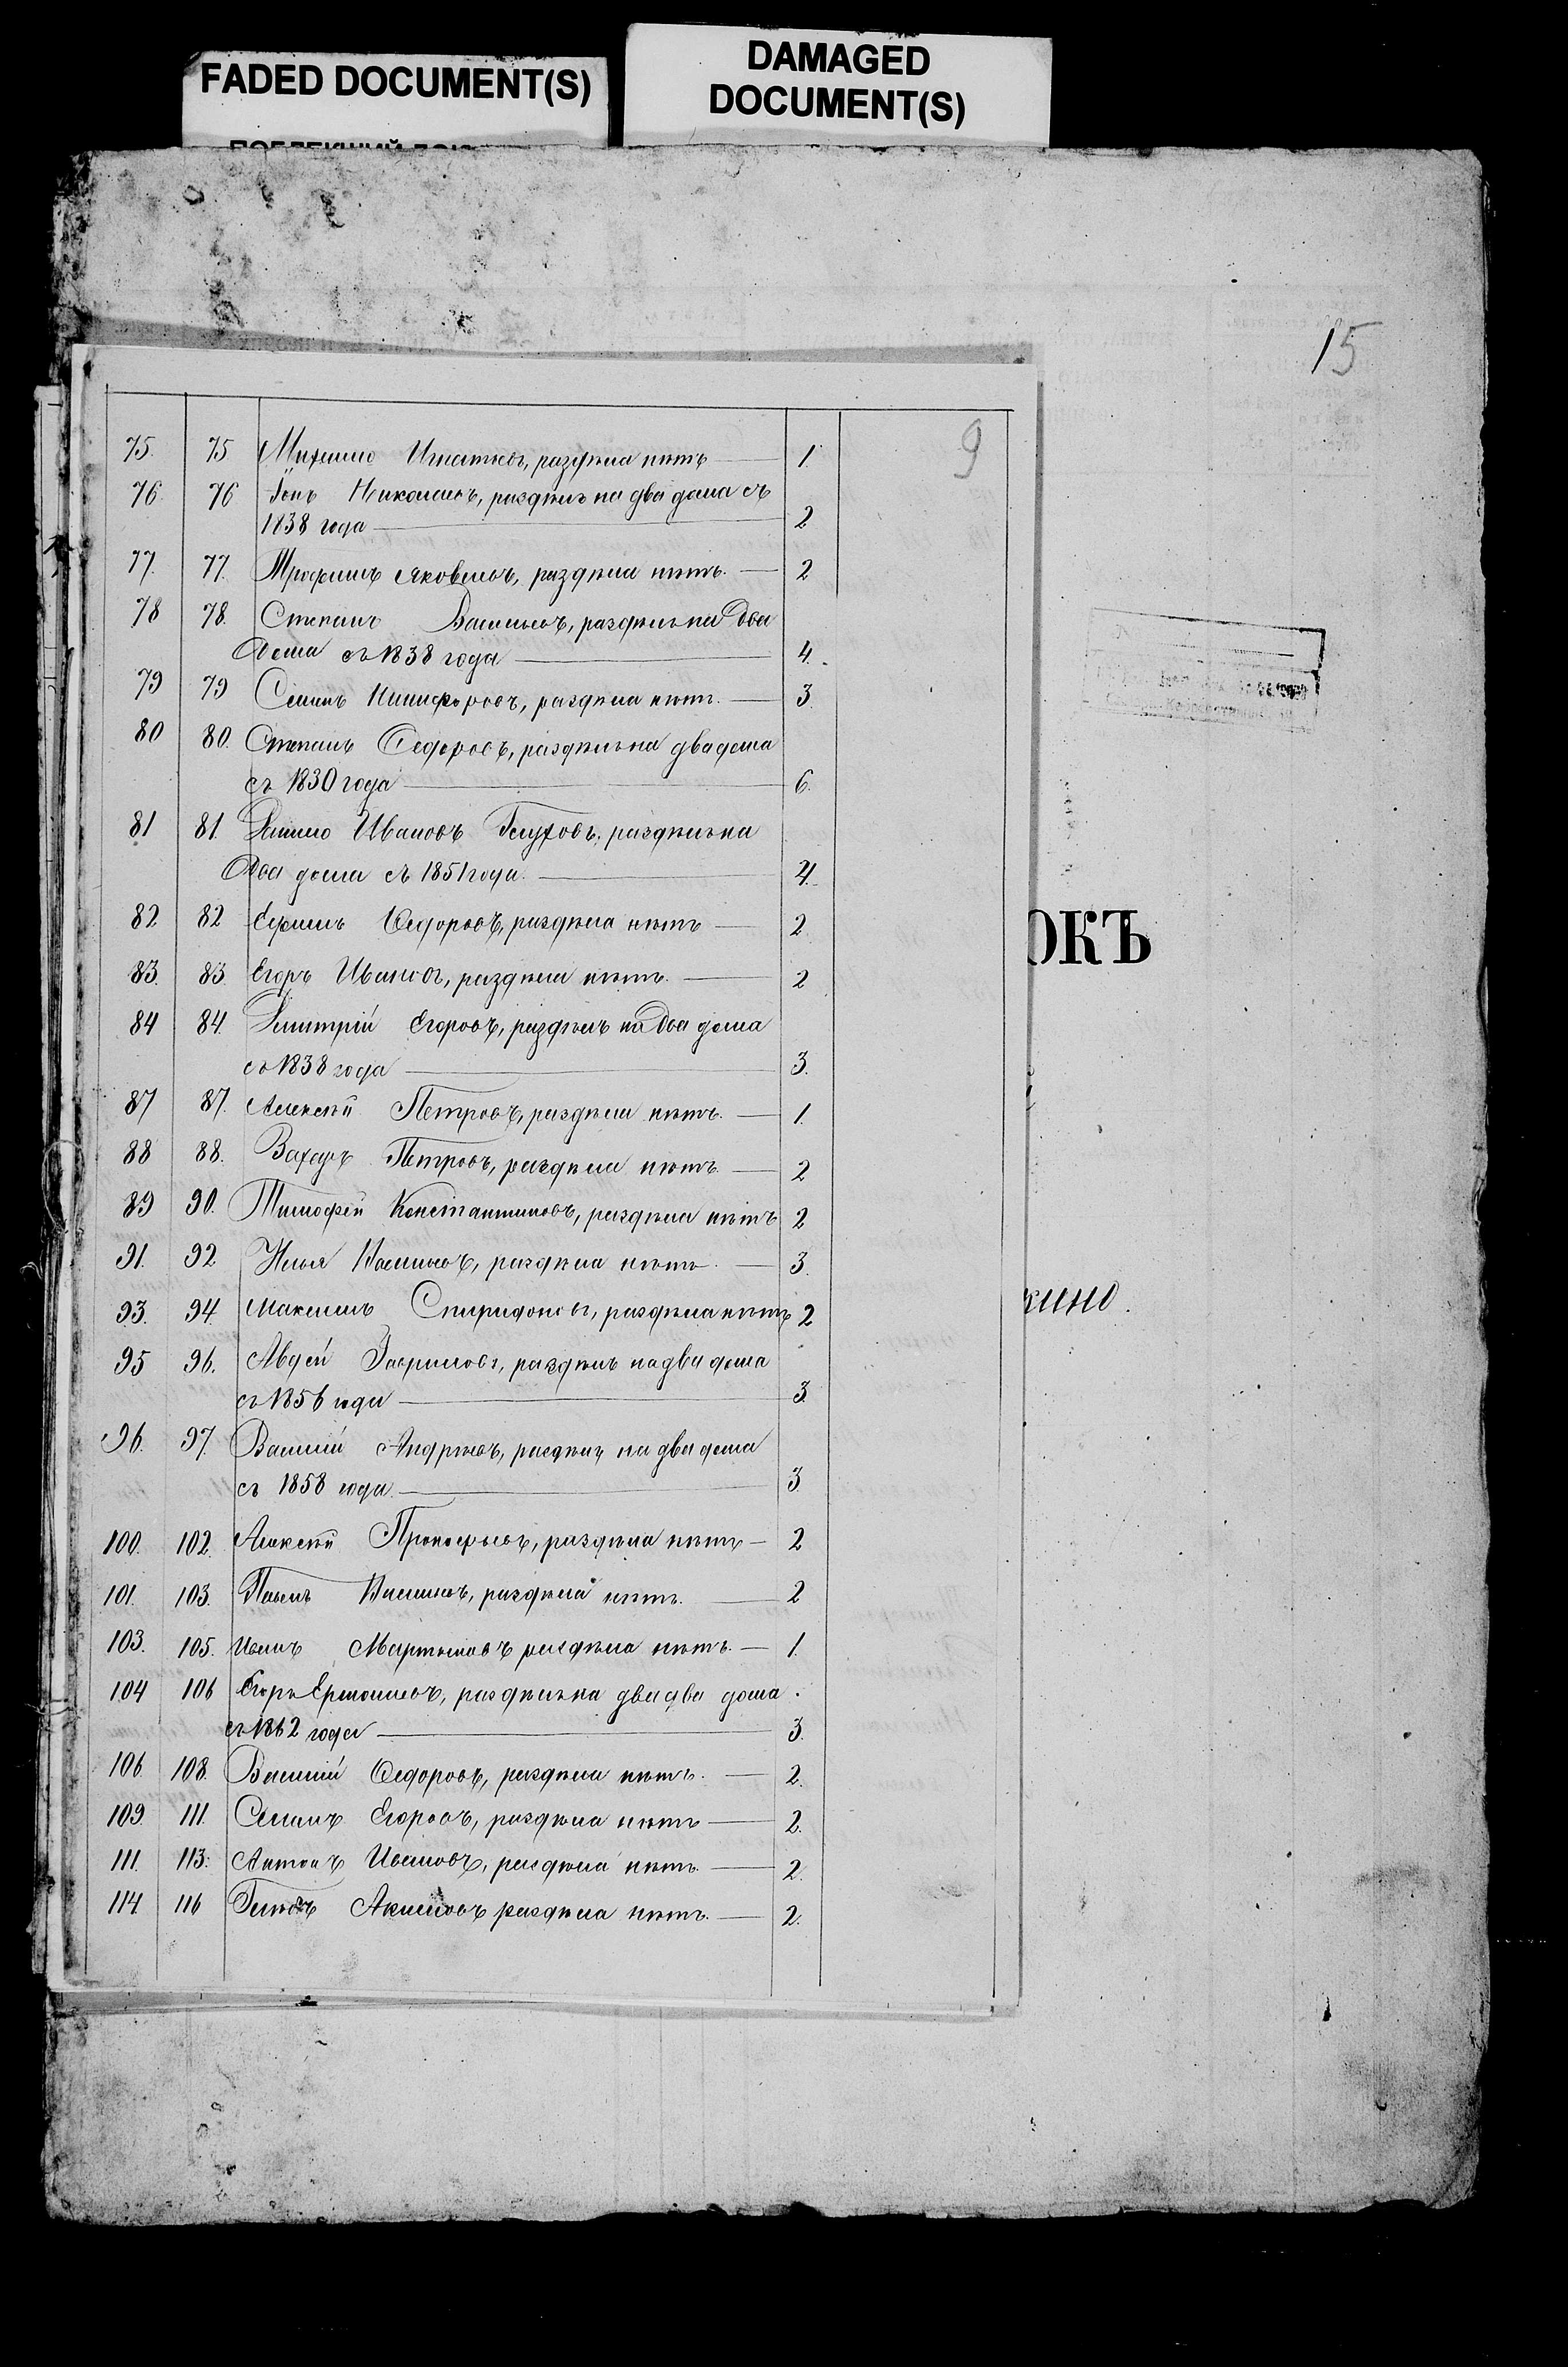 FADED DOCUMENT(S)
DAMAGED
DOCUMENT(S)
15
9
75. 75 Михайло Игнатьевъ, раздѣла нѣтъ — 1.
76. 76 Іонъ Николаевъ, раздѣлъ на два дома съ
1838 года — 2
77. 77. Трофимъ Яковлевъ, раздѣла нѣтъ. — 2
78 78. Степанъ Васильевъ, раздѣлъ на два
дома съ 1838 года — 4.
79 79 Семенъ Никифоровъ, раздѣла нѣтъ. — 3.
80 80. Степанъ Ѳедоровъ, раздѣлъ на два дома
съ 1830 года — 6.
81 81. Данило Ивановъ Глуховъ, раздѣлъ на
два дома съ 1851 года. — 4.
82 82 Ефимъ Ѳедоровъ, раздѣла нѣтъ — 2
83. 83. Егоръ Ивановъ, раздѣла нѣтъ. — 2
84 84. Дмитрій Егоровъ, раздѣлъ на два дома
съ 1838 года — 3.
87 87. Алексѣй Петровъ, раздѣла нѣтъ. — 1.
88 88. Захаръ Петровъ, раздѣла нѣтъ. — 2
89 90. Тимофей Константиновъ, раздѣла нѣтъ 2
91. 92 Илья Васильевъ, раздѣла нѣтъ. — 3.
93. 94. Максимъ Спиридоновъ, раздѣла нѣтъ 2
95 96. Авдей Гавриловъ, раздѣлъ на два дома
съ 1856 года — 3.
96. 97. Василій Андреевъ, раздѣлъ на два дома
съ 1858 года. — 3
100. 102. Алексѣй Прокофьевъ, раздѣла нѣтъ — 2
101. 103. Павелъ Васильевъ, раздѣла нѣтъ. — 2
103. 105. Иванъ Мартыновъ раздѣла нѣтъ. — 1.
104 106 Егоръ Ермолаевъ, раздѣлъ на два два дома
съ 1862 года — 3.
106. 108. Василій Ѳедоровъ, раздѣла нѣтъ. — 2.
109. 111. Семенъ Егоровъ, раздѣла нѣтъ — 2.
111. 113. Антонъ Ивановъ, раздѣла нѣтъ — 2.
114. 116 Акимовъ раздѣла нѣтъ. — 2.
ОКЪ
кино.